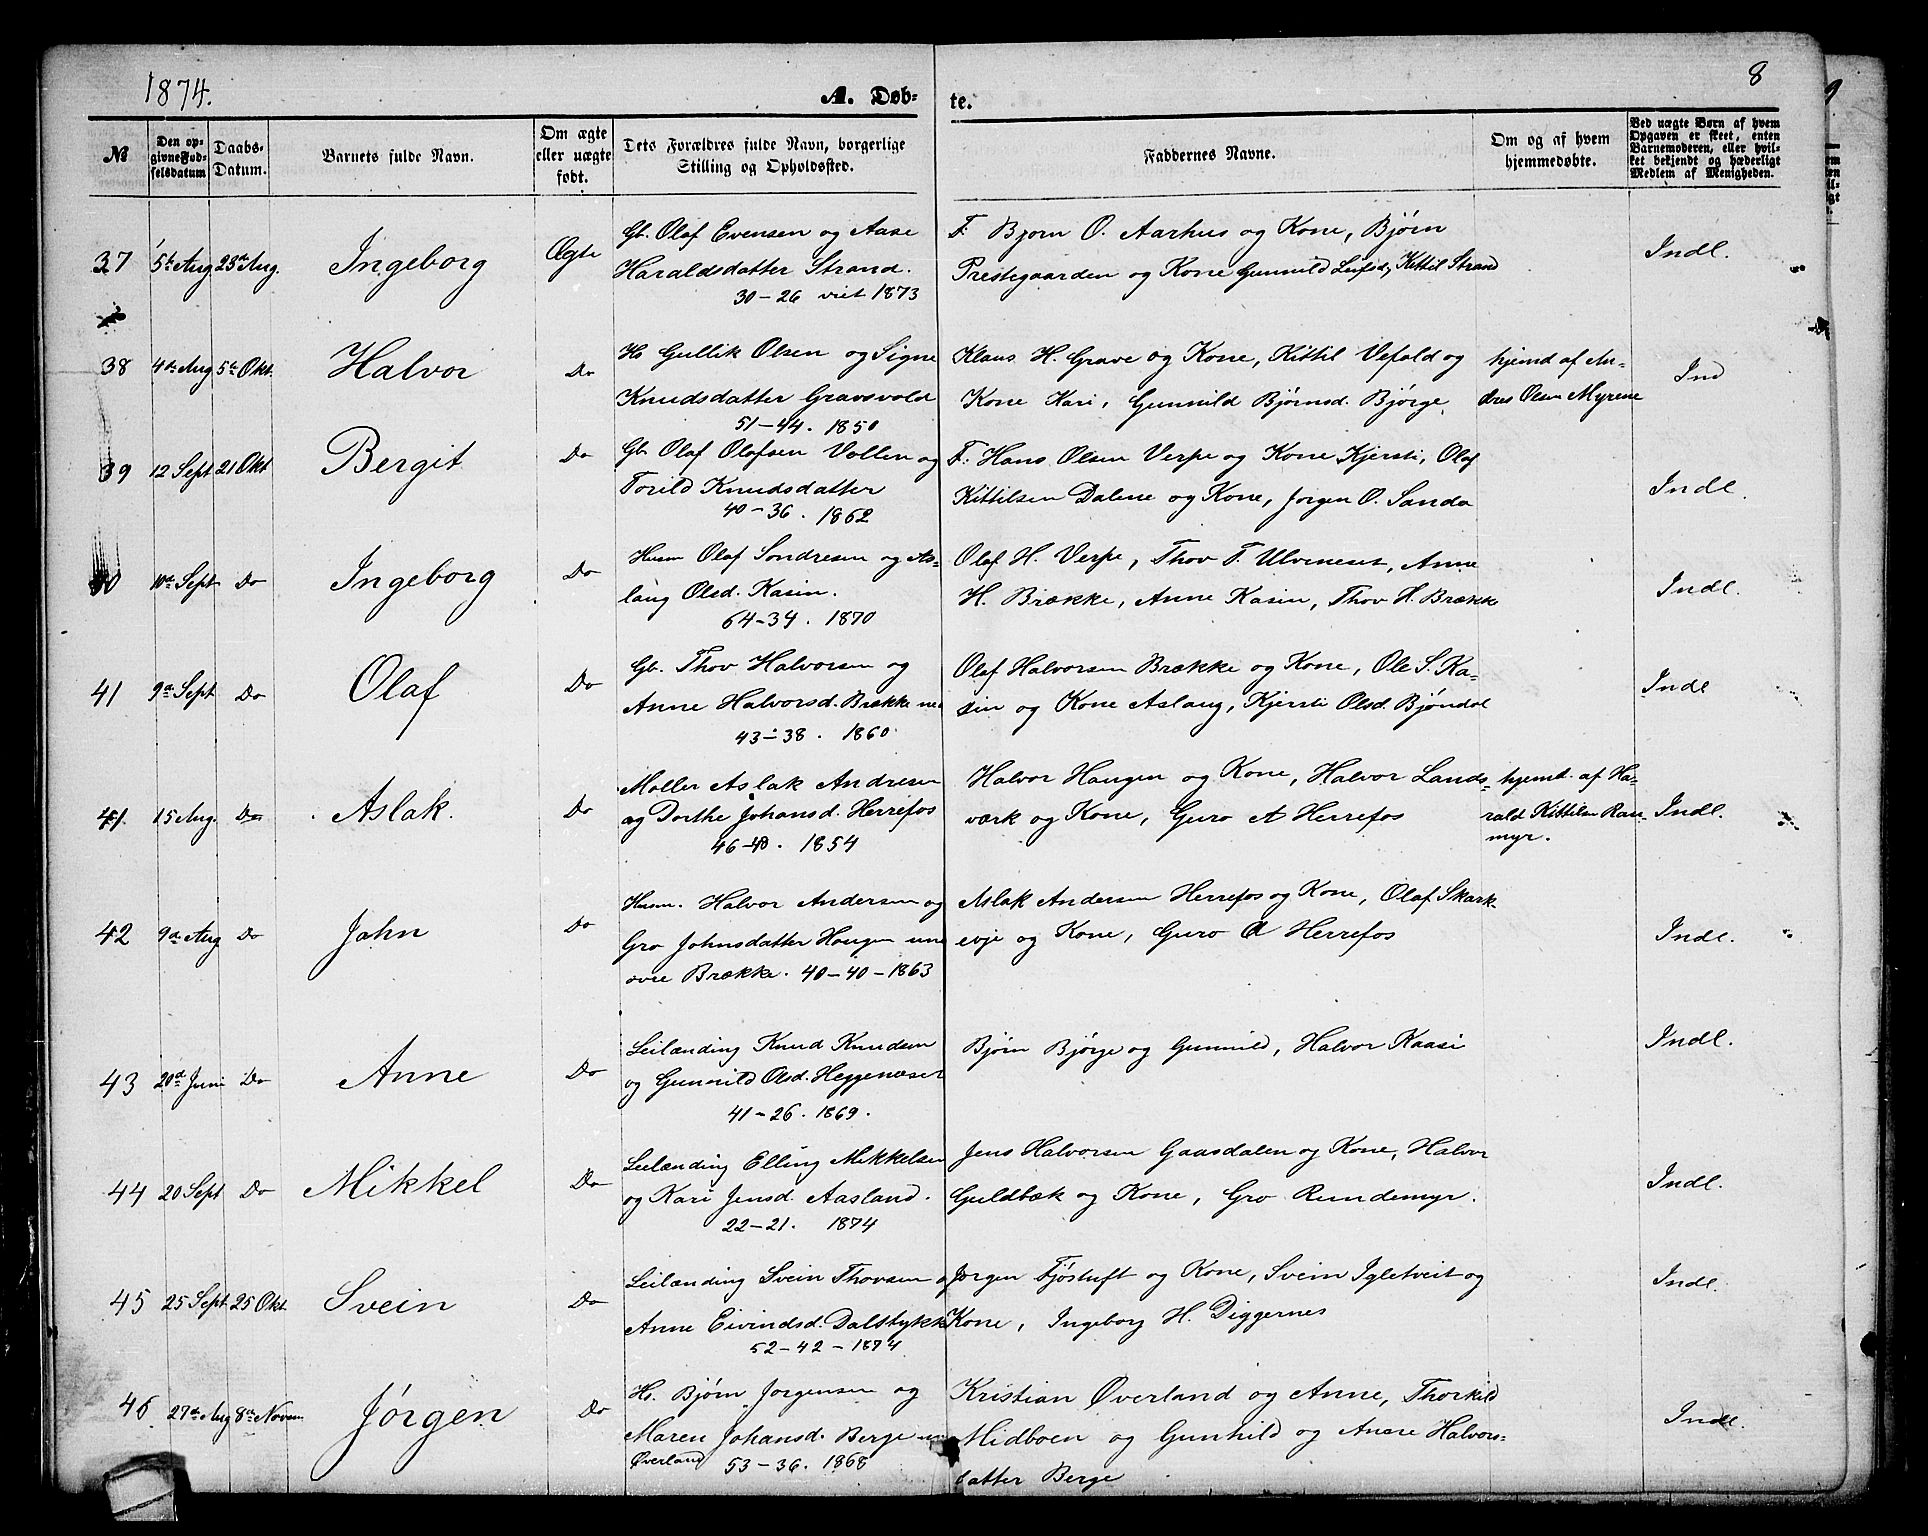 1874. A. Døb- te. 8
№ Den opgivne Fødselsdatum Daabs-Datum. Barnets fulde Navn. Om ægte eller uægte født. Dets Forældres fulde Navn, borgerlige Stilling og Opholdssted. Faddernes Navne. Om og af hvem hjemmedøbte. Ved uægte Børn af hvem Opgaven er skeet, enten Barnemoderen, eller hvilket bekjendt og hæderligt Medlem af Menigheden.
37 5te Aug 23de Aug. Ingeborg Ægte Gb. Olaf Evensen og Aase F. Bjorn O. Aarhus og Kone, Bjørn Indl.
Haraldsdatter Strand. Prestegaarden og Kone Gunnild Leifsd, Kittil Strand
30-26 viet 1873
38 4de Aug 5te Okt. Halvor Do Hs Gullik Olsen og Signe Klaus H. Grave og Kone, Kittil Vefald og hjemd af An- Ind
Knudsdatter Gravsvold Kone Kari, Gunnild Bjørnsd. Bjørge. dres Olsen Myrene
51-44. 1850
39 12 Sept 21 Okt Bergit Do Gb. Olaf Olofsen Vollen og F. Hans Olsen Verpe og Kone Kjersti, Olaf Indl.
Torild Knudsdatter Kittilsen Dalene og Kone, Jorgen O. Sanda
40-36. 1862
40 10de Sept Do Ingeborg Do Husm Olaf Sondresen og As- Olaf H. Verpe, Thov T. Ulveneset, Anne Indl.
laug Olsd. Kasin. H. Brække, Anne Kasin, Thov H. Brække
64-34. 1870
41 9de Sept Do Olaf Do Gb. Thov Halvorsen og Olaf Halvorsen Brække og Kone, Ole S. Ka- Indl
Anne Halvorsd. Brække ne sin og Kone Aslaug, Kjersti Olsd. Bjøndal
43-38. 1860.
41. 15 Aug. Do Aslak. Do Moller Aslak Andresen Halvor Haugen og Kone, Halvor Lands- hjemt. af Ha- Indl.
og Dorthe Johansd. Herrefos værk og Kone, Guro A Herrefos rald Kittilsen Ran-
46-40. 1854 myr.
42 9de Aug Do John Do Husm. Halvor Andersen og Aslak Andersen Herrefos og Kone, Olaf Skark- Indl.
Gro Johnsdatter Haugen un evje og Kone, Guro A Herrefos
over Brække. 40-40-1863
43 20de Juni Do Anne Do Leilænding Knud Knudsen Bjørn Bjørge og Gunnild, Halvor Kaasi Indl.
og Gunnild Olsd. Heggenæset
41-26. 1869.
44 20 Sept Do Mikkel Do Leilænding Elling Mikkelsen Jens Halvorsen Gaasdalen og Kone, Halvor Indl.
og Kari Jensd. Aasland. Guldbæk og Kone, Gro Rundemyr.
22-21. 1874
45 25 Sept 25 Okt Svein Do Leilænding Svein Thovsen o Jorgen Fjøstuft og Kone, Svein Igletveit og Indl.
Anne Eivindsd. Dalstykk Kone, Ingeborg H. Diggernes
52-42-1874
46 27de Aug 8de Novem Jørgen Do Hs. Bjørn Jorgensen og Kristian Øverland og Anne, Thorkild Indl.
Maren Johansd. Berge un Midboen og Gunhild og Anne Halvors-
Øverland 53-36. 1868 datter Berge